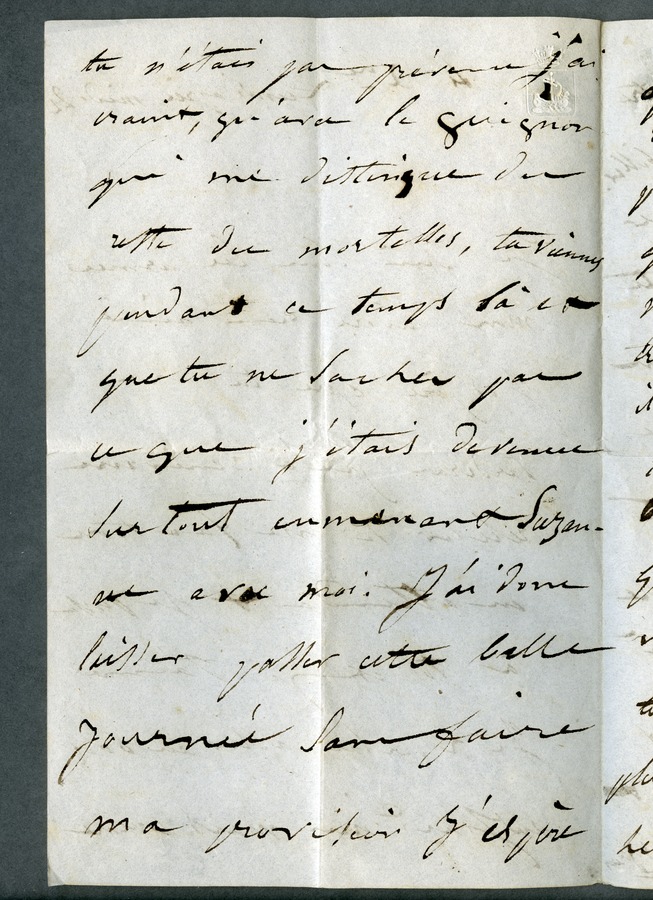 tu n'étais pas prévenu j'ai
craint, qu'avec le guignon
qui me distingue du
reste des mortelles, tu viennes
pendant ce temps là et
que tu ne saches pas
ce que j'étais devenue
surtout emmenant Suzan-
ne avec moi. J'ai donc
laisser passer cette belle
journeé sans faire
ma provision j'espère